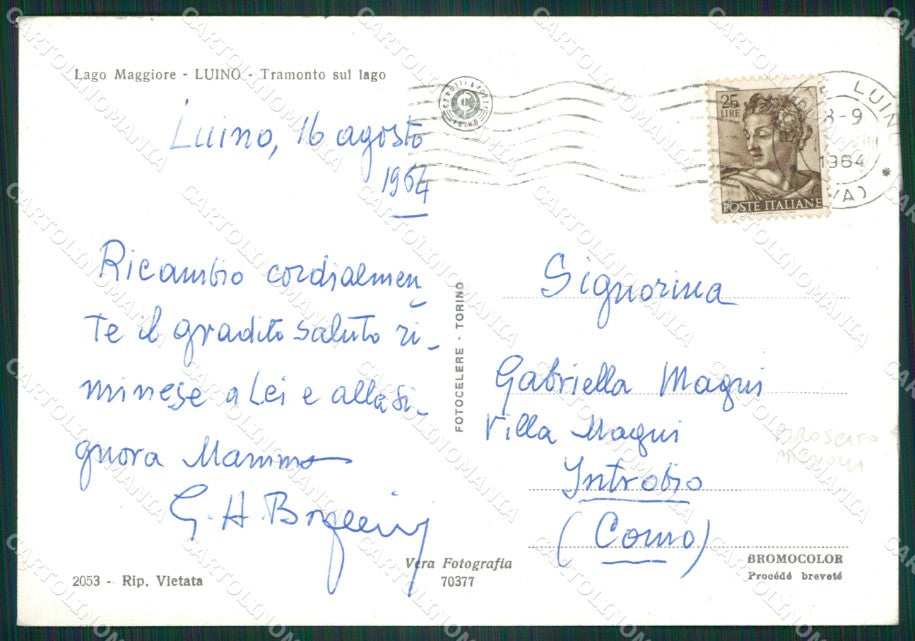 Lago Maggiore - LUINO - Tramonto sul lago
Luino, 16 agosto
1964
Ricambio cordialmen-
te il gradito saluto ri-
minese a Lei e alla Si-
gnora Mamma
G. H.
2053 - Rip. Vietata
Vera Fotografia
70377
FOTOCELERE - TORINO
25
LIRE
POSTE ITALIANE
LUINO
8-9
1964
(VA)
Signorina
Gabriella Magni
Villa Magni
Introbio
(Como)
PIROSCAFO
BROMOCOLOR
Procédé breveté
CARTOLINOMANIA